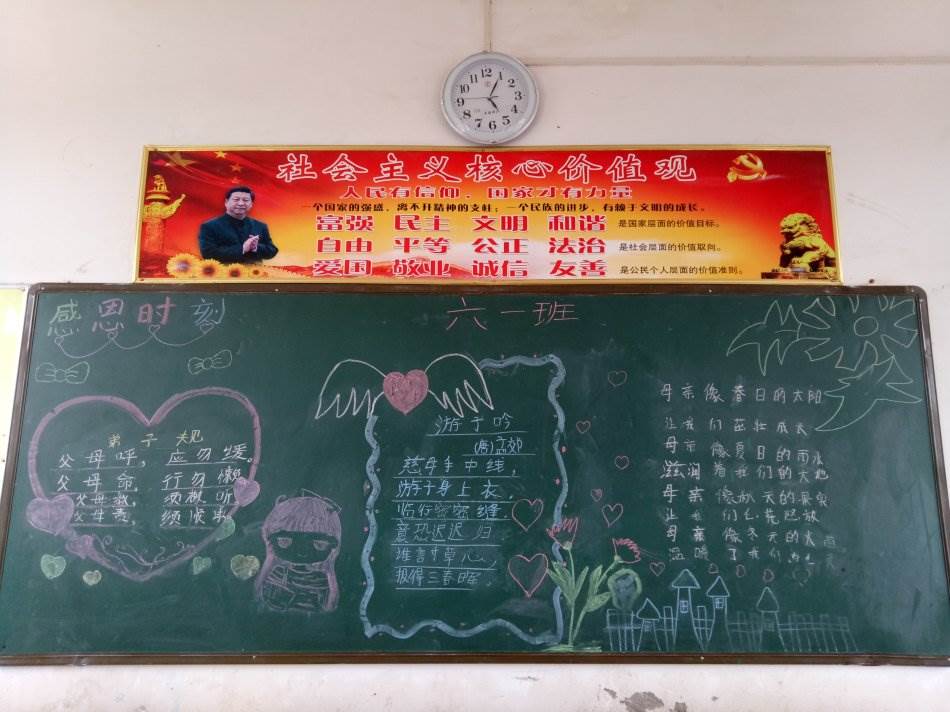 12
1
2
3
4
5
6
7
8
9
10
11
社会主义核心价值观
人民有信仰,国家才有力量
一个国家的强盛,离不开精神的支柱;一个民族的进步,有赖于文明的成长。
富强 民主 文明 和谐 是国家层面的价值目标。
自由 平等 公正 法治 是社会层面的价值取向。
爱国 敬业 诚信 友善 是公民个人层面的价值准则。
感恩时刻
六一班
弟子规
父母呼,应勿缓。
父母命,行勿懒
父母教,须敬听
父母责,须承
游子吟
(唐)孟郊
慈母手中线,
游子身上衣,
临行密密缝,
意恐迟迟归
谁言寸草心,
报得三春晖
母亲像春日的太阳
让我们茁壮成长
母亲像夏日的雨水
滋润着我们的大地
母亲像秋天的
让我们
母亲像冬天的火
温暖了我们